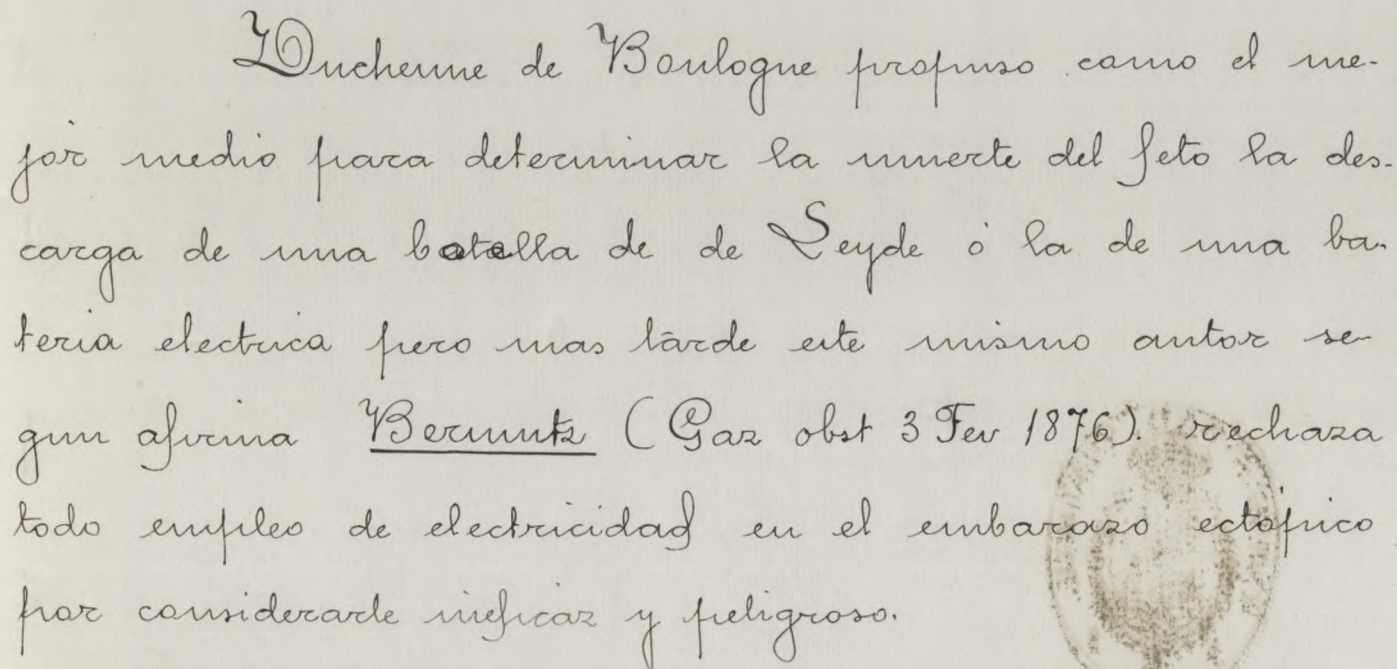 Duchenne de Boulogne propuso como el me-
jor medio para determinar la muerte del feto la des-
carga de una botella de de Leyde ó la de una ba-
teria electrica pero mas tarde este mismo autor se-
gun afirma Bernutz (Gaz obst 3 Fev 1876). rechaza
todo empleo de electricidad en el embarazo ectópico
por considerarle ineficaz y peligroso.